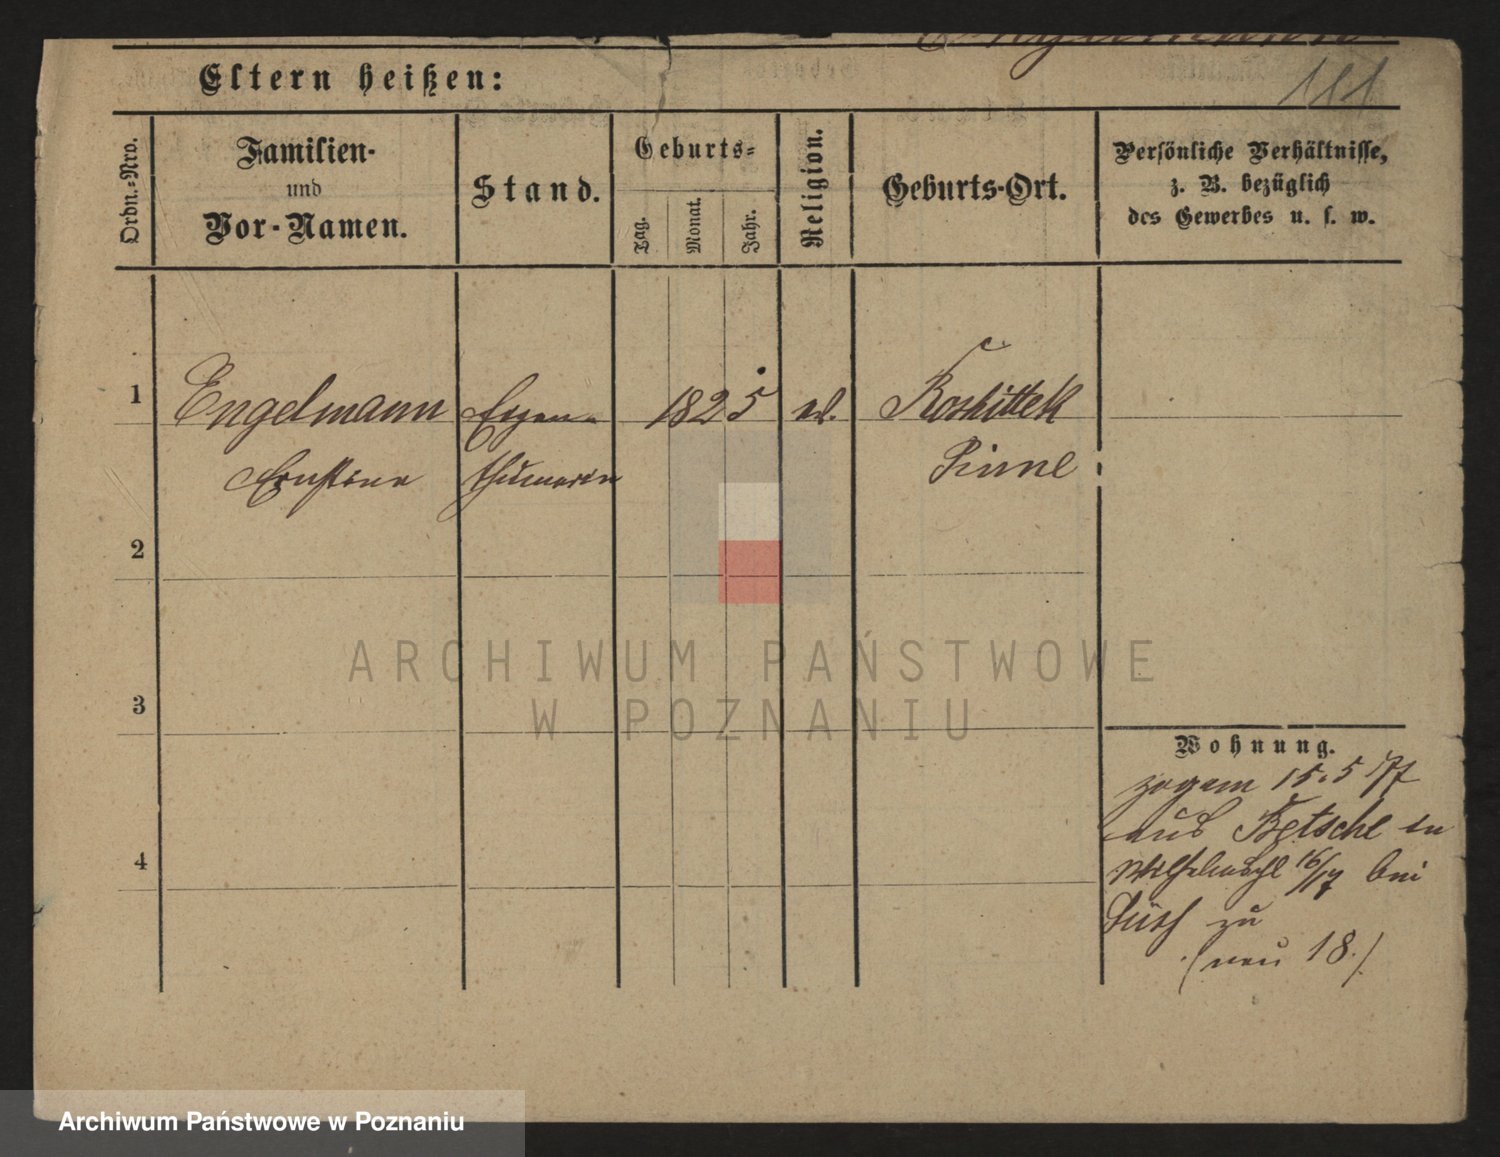 Engelmann
111
Eltern heißen:
Ordn.-Nro.
Familien-
und
Vor-Namen.
Stand.
Geburts-
Tag.
Monat.
Jahr.
Religion.
Geburts-Ort.
Persönliche Verhältnisse,
z. B. bezüglich
des Gewerbes u. s. w.
1
Engelmann
Eigen-
1825
ev.
Koshittek
Ernstine
thümerin
Pinne
2
3
4
ARCHIWUM PAŃSTWOWE
W POZNANIU
Wohnung.
zog am 15.5 77
aus Betsche in
16/17 bei
zu
(neu 18.)
Archiwum Państwowe w Poznaniu